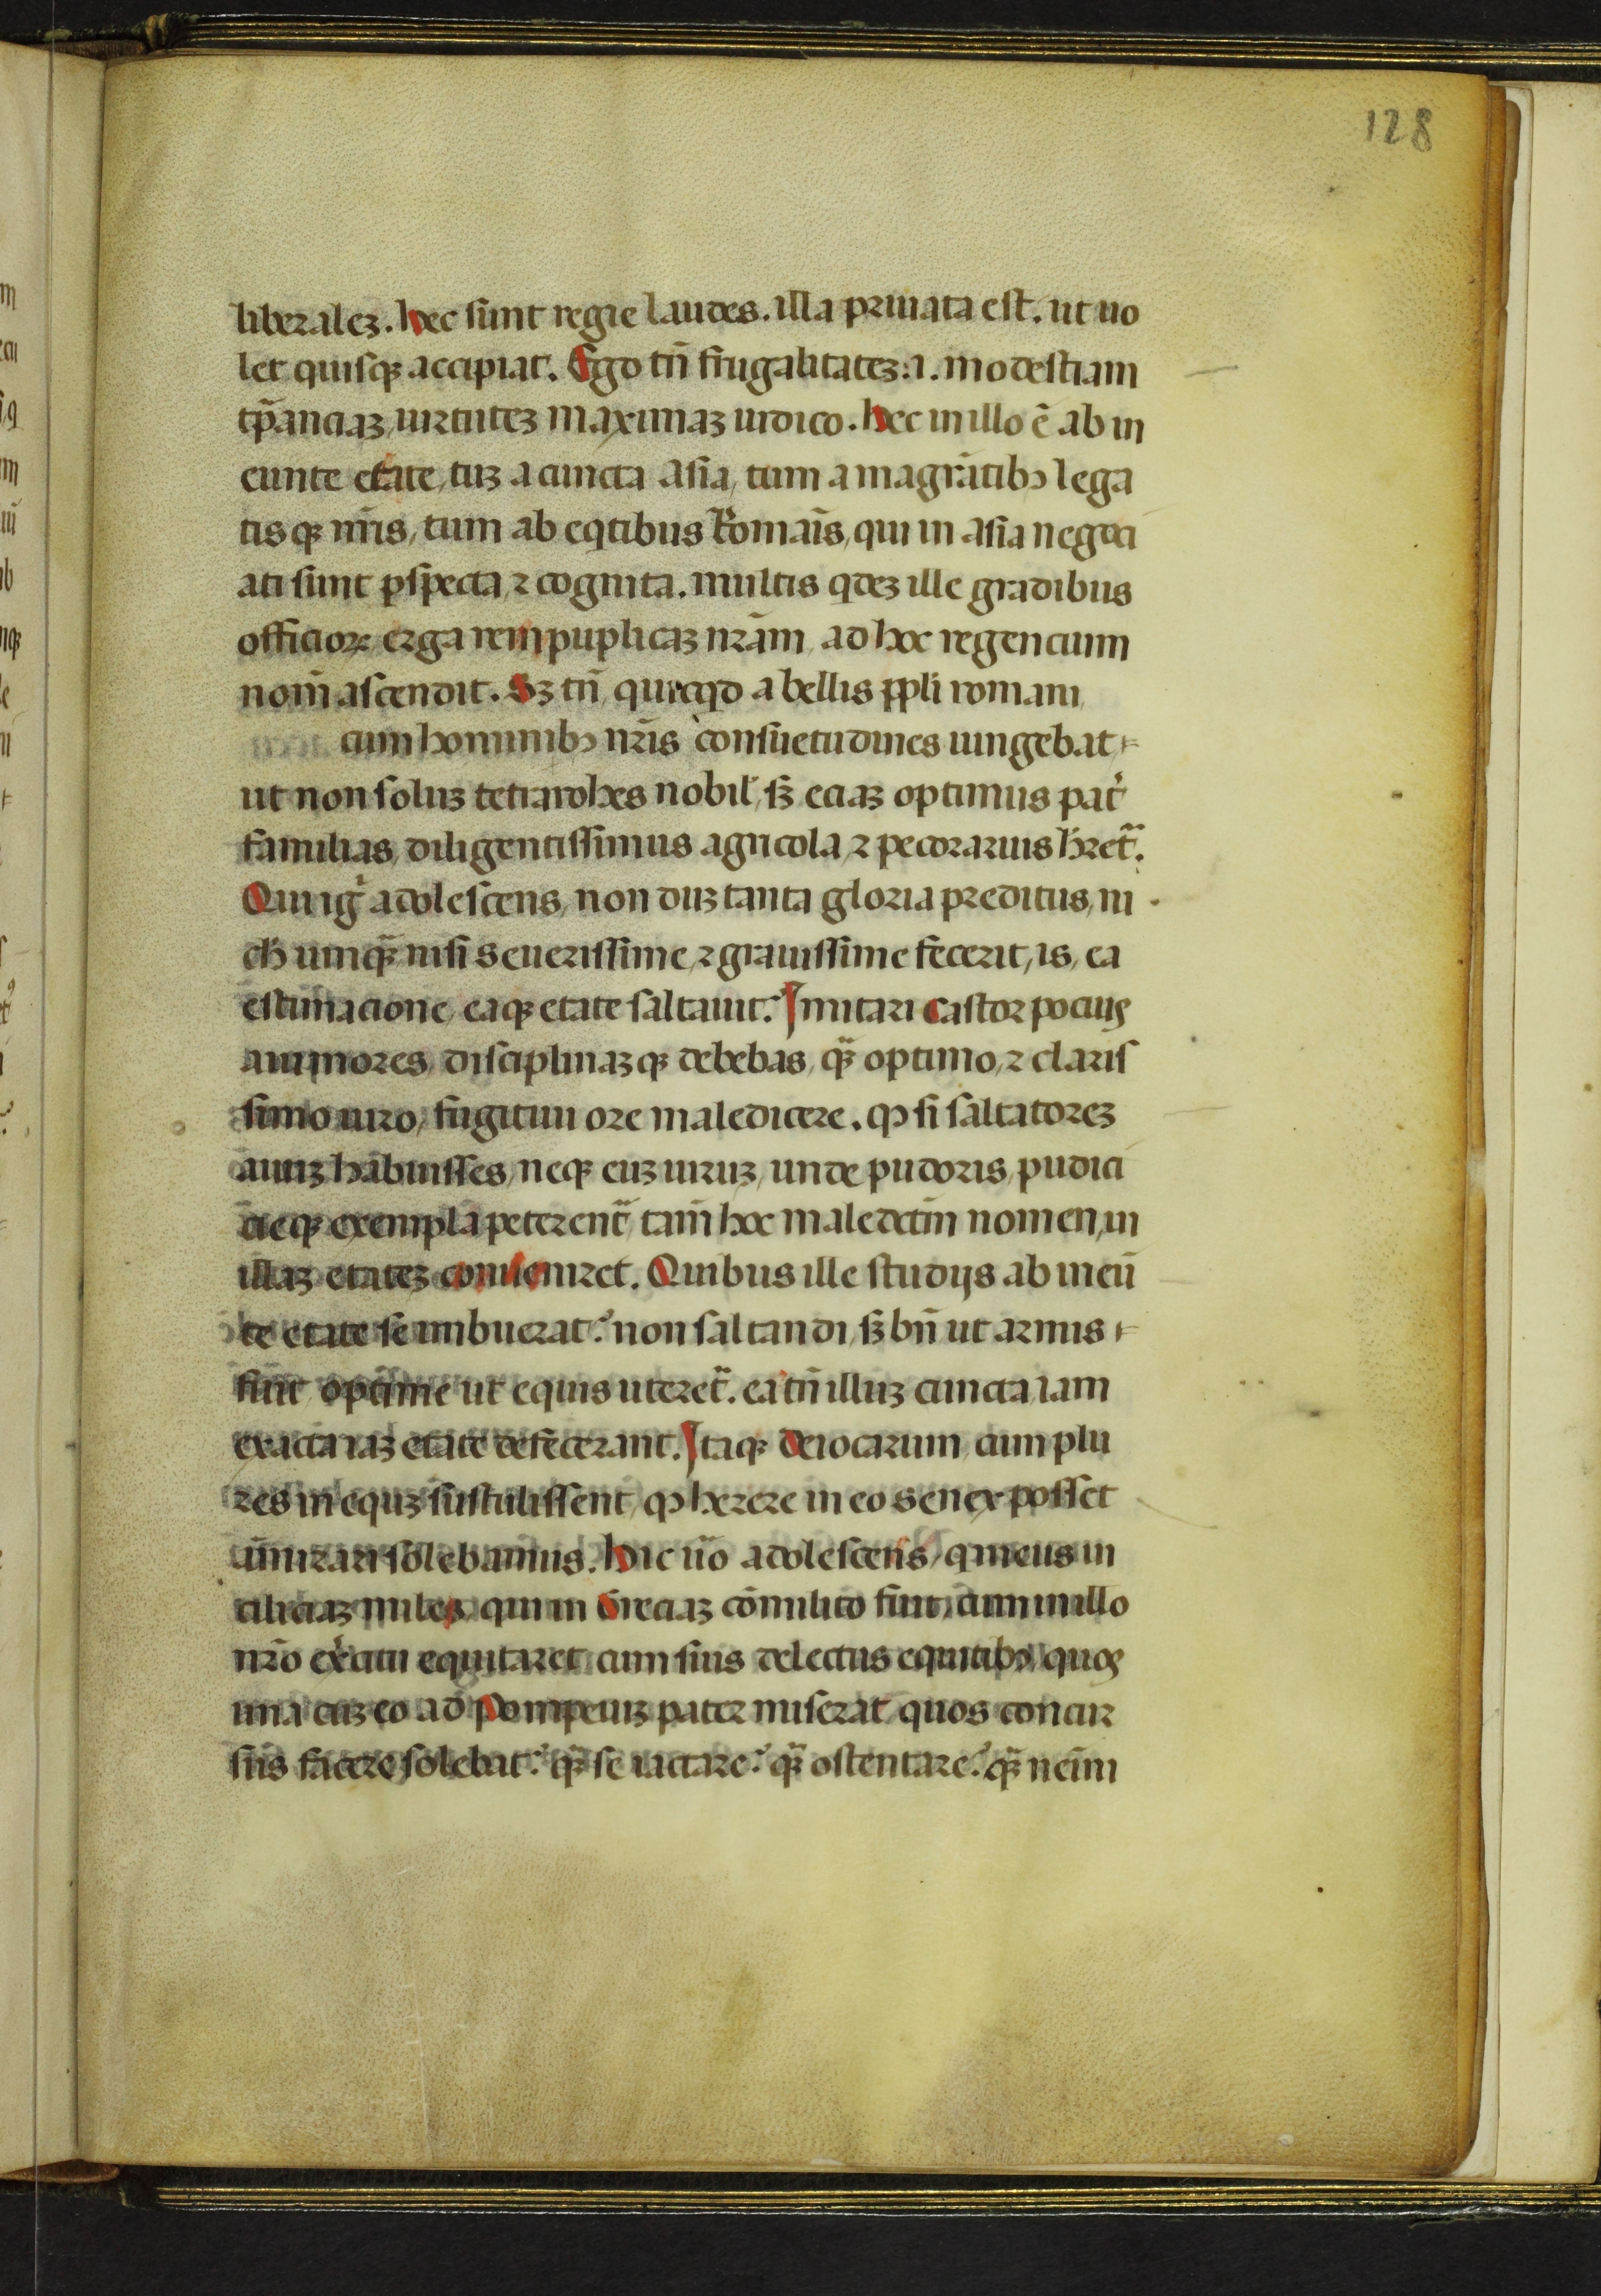 128
liberaleʒ. hec sunt regie laudes. illa priuata est. ut uo
let quisqꝫ accipiat. Ego tn̄ frugalitateʒ .i. modestiam
tꝑanciaʒ, uirtuteʒ maximaʒ iudico. hec in illo ē ab in
eunte etate, tuʒ a cuncta asia, tum a magr̄atibꝰ lega
tisqꝫ nr̄is, tum ab eqtibus Romaīs, qui in asia negoci
ati sunt ꝑspecta, ⁊ cognita. multis qdeʒ ille gradibus
officioꝝ erga rem puplicaʒ nr̄am, ad hoc regen cium
nom̄ ascendit. Sʒ tn̄ quicqd a bellis ppli romani,
cum hominibꝰ nr̄is consuetudines iungebat
ut non soluʒ tetrarches nobil', sʒ eciaʒ optimus pat̾
familias, diligentissimus agricola, ⁊ pecorarius hr̄et᷑.
Qui ig̾ adolescens, non duʒ tanta gloria preditus, ni
ch umqꝫ̄ nisi seuerissime, ⁊ grauissime fecerit, is, ea
estimacione, eaqꝫ etate saltauit? Imitari Castor pocius
aui mores, disciplinaʒqꝫ debebas, qꝫ̄ optimo, ⁊ claris
simo uiro, fugitiui ore maledicere. ꝙ si saltatoreʒ
auuʒ habuisses, neqꝫ euʒ uiruʒ, unde pudoris, pudici
cieqꝫ exempla peterent᷑, tam̄ hoc maledcm̄ nomen, in
illaʒ etateʒ conueniret. Quibus ille studijs ab ineū
te etate se imbuerat? non saltandi, sʒ bn̄ ut armis
fuit optime ut equis uteret᷑. ea tn̄ illuʒ cuncta iam
exacta iaʒ etate defecerant. Itaqꝫ deiotarum, cum plu
res in equʒ sustulissent, ꝙ herere in eo senex posset
am̄irari solebamus. hic ūo adolescens, q meus in
ciliciaʒ miles, qui in Greciaʒ cōmilito fuit, cum in illo
nr̄o ex̾citu equitaret cum suis delectis equitibꝰ, quos
una cuʒ eo ad Pompeiuʒ pater miserat, quos concur
sus facere solebat? qꝫ̄ se iactare? qꝫ̄ ostentare? qꝫ̄ neīni